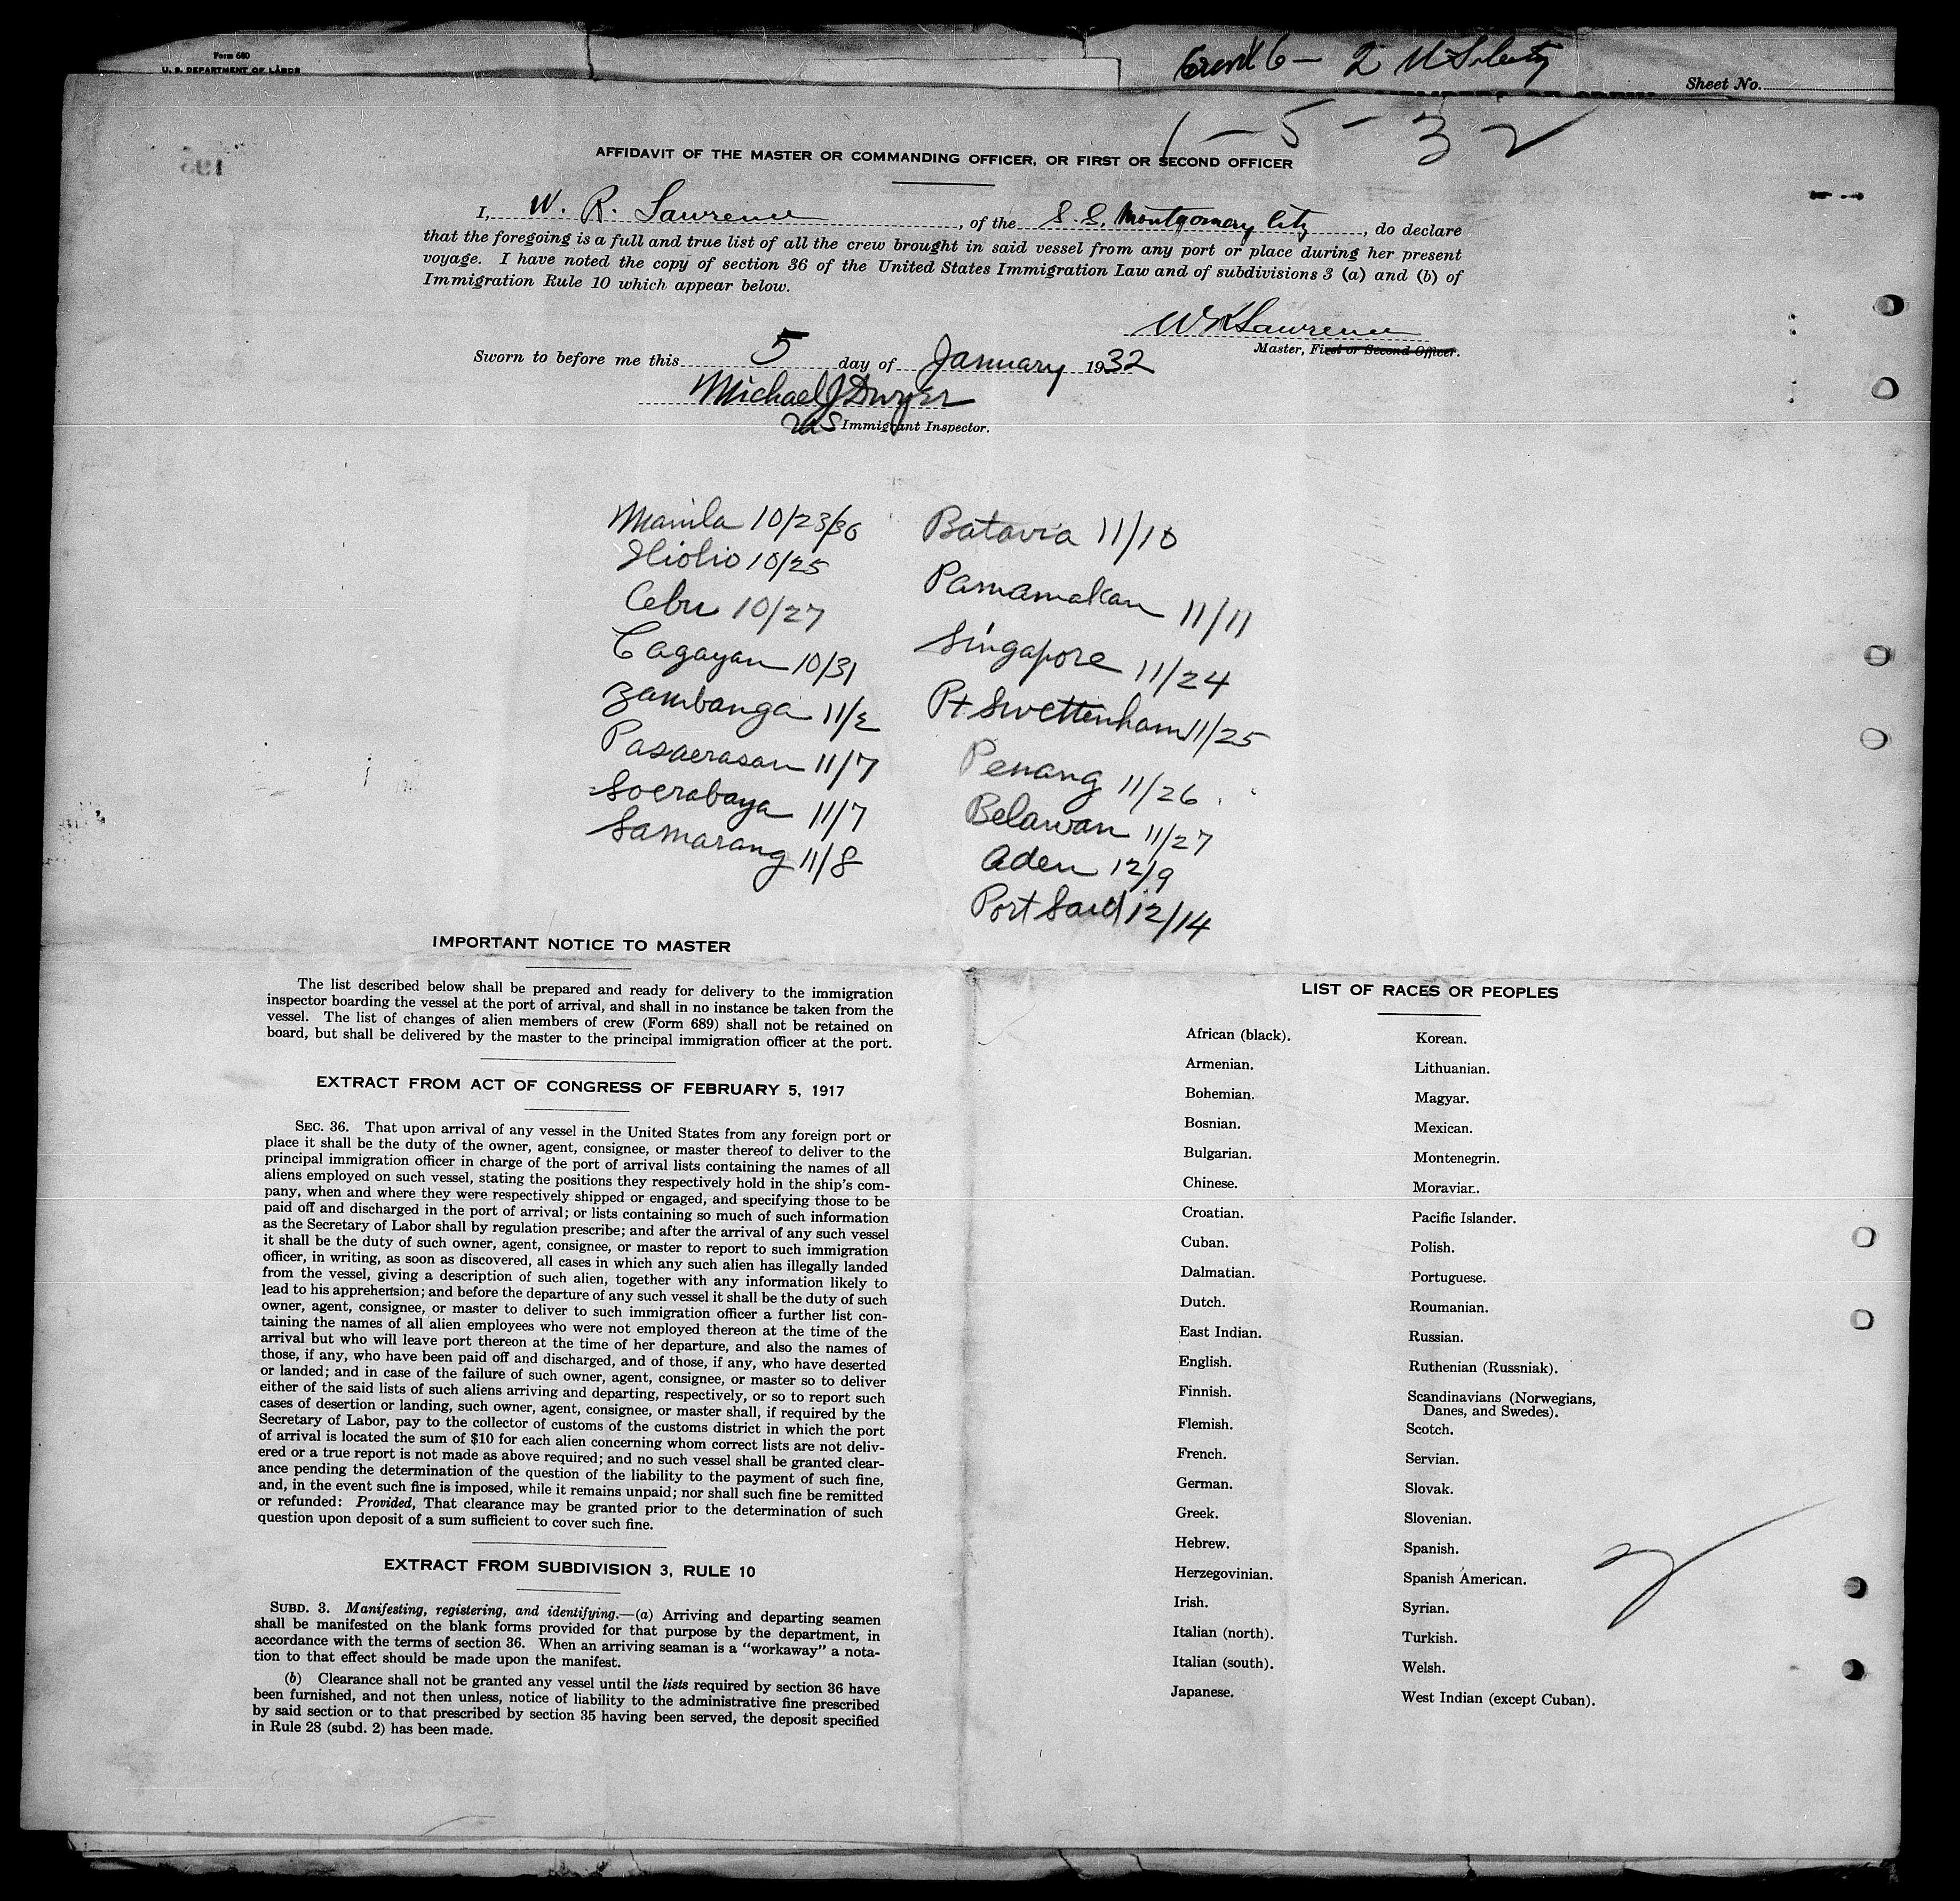 Form 680
U. S. DEPARTMENT OF LABOR
6 - 2 U S
Sheet No.
1 - 5 - 32
AFFIDAVIT OF THE MASTER OR COMMANDING OFFICER, OR FIRST OR SECOND OFFICER
I, W. R. Lawrence, of the S. S. Montgomery City, do declare
that the foregoing is a full and true list of all the crew brought in said vessel from any port or place during her present
voyage. I have noted the copy of section 36 of the United States Immigration Law and of subdivisions 3 (a) and (b) of
Immigration Rule 10 which appear below.
W R Lawrence
Master, First or Second Officer.
Sworn to before me this 5 day of January 1932
Michael J Dwyer
US Immigrant Inspector.
Manila 10/23/30
Iliolio 10/25
Cebu 10/27
Cagayan 10/31
Zambanga 11/2
Pasaerasan 11/7
Soerabaya 11/7
Samarang 11/8
Batavia 11/10
Pamamakan 11/11
Singapore 11/24
Pt Swettenham 11/25
Penang 11/26
Belawan 11/27
Aden 12/9
Port Said 12/14
IMPORTANT NOTICE TO MASTER
The list described below shall be prepared and ready for delivery to the immigration
inspector boarding the vessel at the port of arrival, and shall in no instance be taken from the
vessel. The list of changes of alien members of crew (Form 689) shall not be retained on
board, but shall be delivered by the master to the principal immigration officer at the port.
EXTRACT FROM ACT OF CONGRESS OF FEBRUARY 5, 1917
SEC. 36. That upon arrival of any vessel in the United States from any foreign port or
place it shall be the duty of the owner, agent, consignee, or master thereof to deliver to the
principal immigration officer in charge of the port of arrival lists containing the names of all
aliens employed on such vessel, stating the positions they respectively hold in the ship's com-
pany, when and where they were respectively shipped or engaged, and specifying those to be
paid off and discharged in the port of arrival; or lists containing so much of such information
as the Secretary of Labor shall by regulation prescribe; and after the arrival of any such vessel
it shall be the duty of such owner, agent, consignee, or master to report to such immigration
officer, in writing, as soon as discovered, all cases in which any such alien has illegally landed
from the vessel, giving a description of such alien, together with any information likely to
lead to his apprehension; and before the departure of any such vessel it shall be the duty of such
owner, agent, consignee, or master to deliver to such immigration officer a further list con-
taining the names of all alien employees who were not employed thereon at the time of the
arrival but who will leave port thereon at the time of her departure, and also the names of
those, if any, who have been paid off and discharged, and of those, if any, who have deserted
or landed; and in case of the failure of such owner, agent, consignee, or master so to deliver
either of the said lists of such aliens arriving and departing, respectively, or so to report such
cases of desertion or landing, such owner, agent, consignee, or master shall, if required by the
Secretary of Labor, pay to the collector of customs of the customs district in which the port
of arrival is located the sum of $10 for each alien concerning whom correct lists are not deliv-
ered or a true report is not made as above required; and no such vessel shall be granted clear-
ance pending the determination of the question of the liability to the payment of such fine,
and, in the event such fine is imposed, while it remains unpaid; nor shall such fine be remitted
or refunded: Provided, That clearance may be granted prior to the determination of such
question upon deposit of a sum sufficient to cover such fine.
EXTRACT FROM SUBDIVISION 3, RULE 10
SUBD. 3. Manifesting, registering, and identifying.—(a) Arriving and departing seamen
shall be manifested on the blank forms provided for that purpose by the department, in
accordance with the terms of section 36. When an arriving seaman is a "workaway" a nota-
tion to that effect should be made upon the manifest.
(b) Clearance shall not be granted any vessel until the lists required by section 36 have
been furnished, and not then unless, notice of liability to the administrative fine prescribed
by said section or to that prescribed by section 35 having been served, the deposit specified
in Rule 28 (subd. 2) has been made.
LIST OF RACES OR PEOPLES
African (black).
Armenian.
Bohemian.
Bosnian.
Bulgarian.
Chinese.
Croatian.
Cuban.
Dalmatian.
Dutch.
East Indian.
English.
Finnish.
Flemish.
French.
German.
Greek.
Hebrew.
Herzegovinian.
Irish.
Italian (north).
Italian (south).
Japanese.
Korean.
Lithuanian.
Magyar.
Mexican.
Montenegrin.
Moravian.
Pacific Islander.
Polish.
Portuguese.
Roumanian.
Russian.
Ruthenian (Russniak).
Scandinavians (Norwegians,
Danes, and Swedes).
Scotch.
Servian.
Slovak.
Slovenian.
Spanish.
Spanish American.
Syrian.
Turkish.
Welsh.
West Indian (except Cuban).